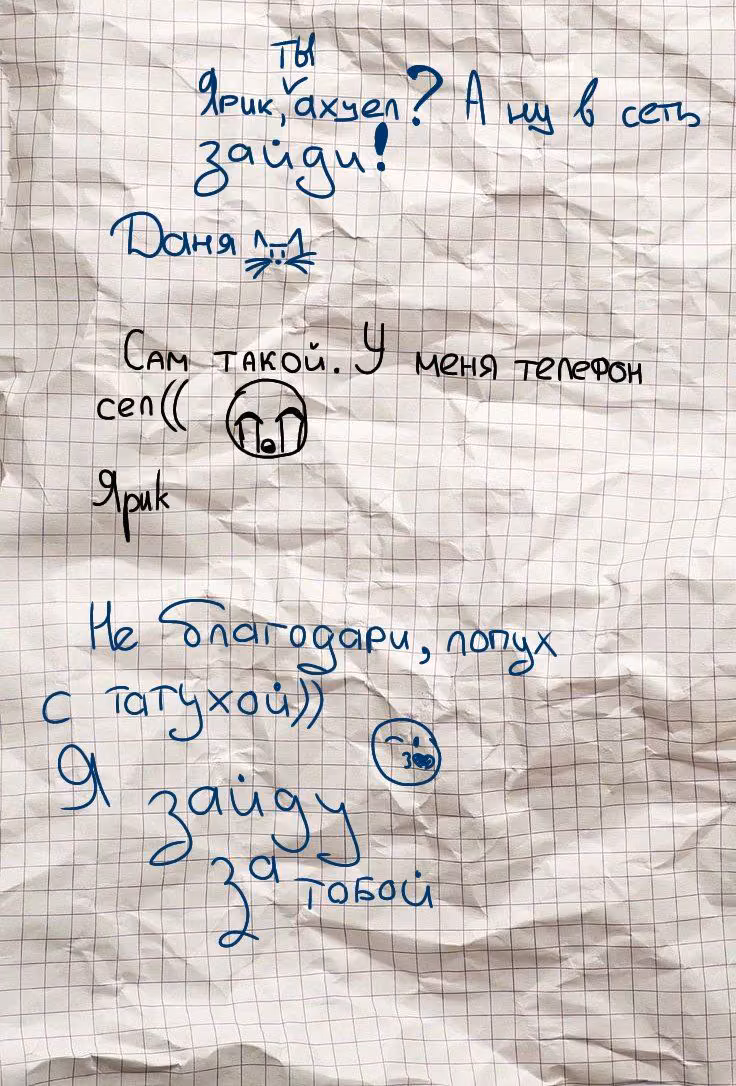 Ярик, ты ахуел? А ну в сеть
зайди!
Даня
Сам такой. У меня телефон
сел((
Ярик
Не благодари, лопух
с татухой))
Я зайду
за тобой